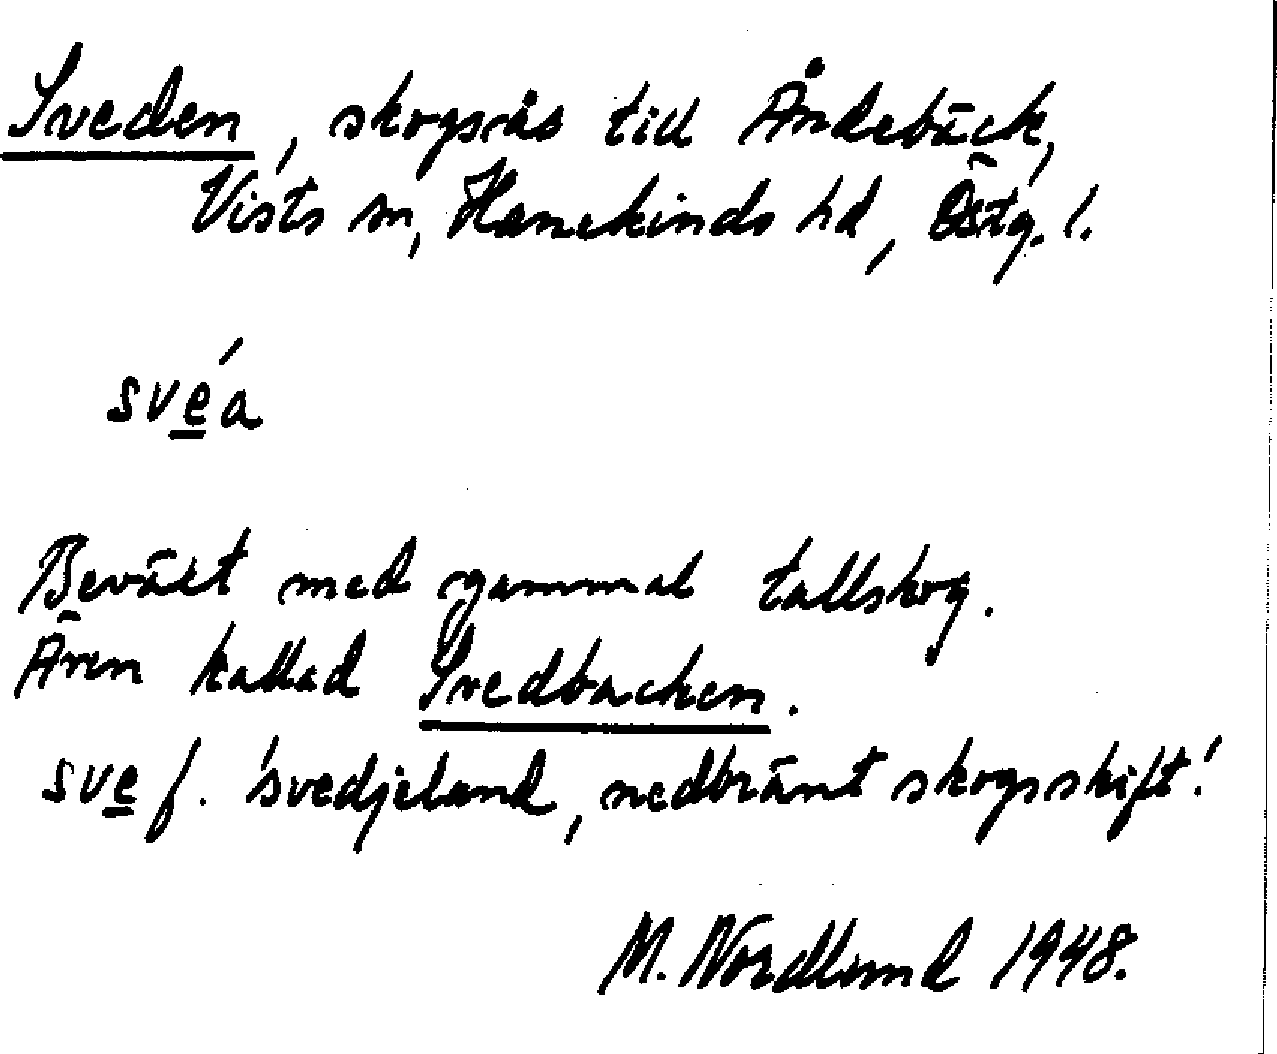 Sveden, skogsås till Åndebäck,
Vists sn, Hanekinds hd, Östg. l.
sve̲´a
Beväxt med gammal tallskog.
Även kallad Svedbacken.
sve̲ f. 'svedjeland, nedbränt skogsskift'.
M. Nordlund 1948.